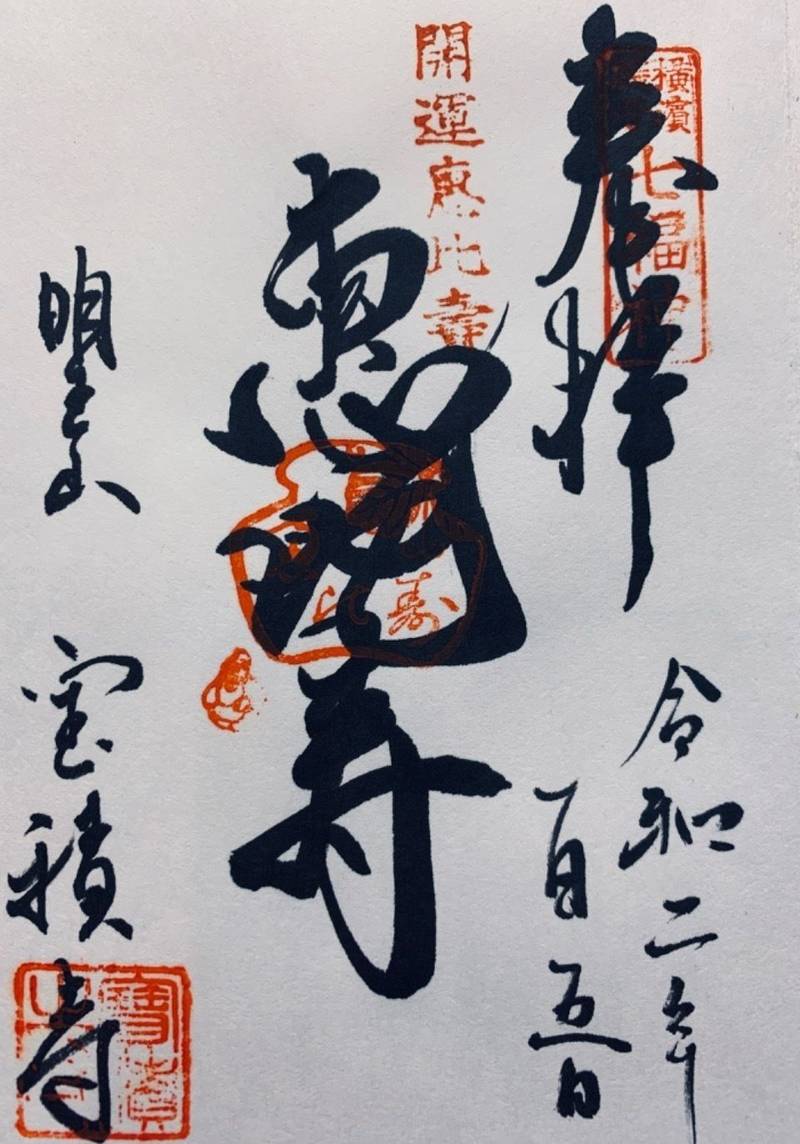 奉拝
横濱
七福神
令和二年
一月五日
開運恵比寿
恵比寿
比寿
明王山
宝積寺